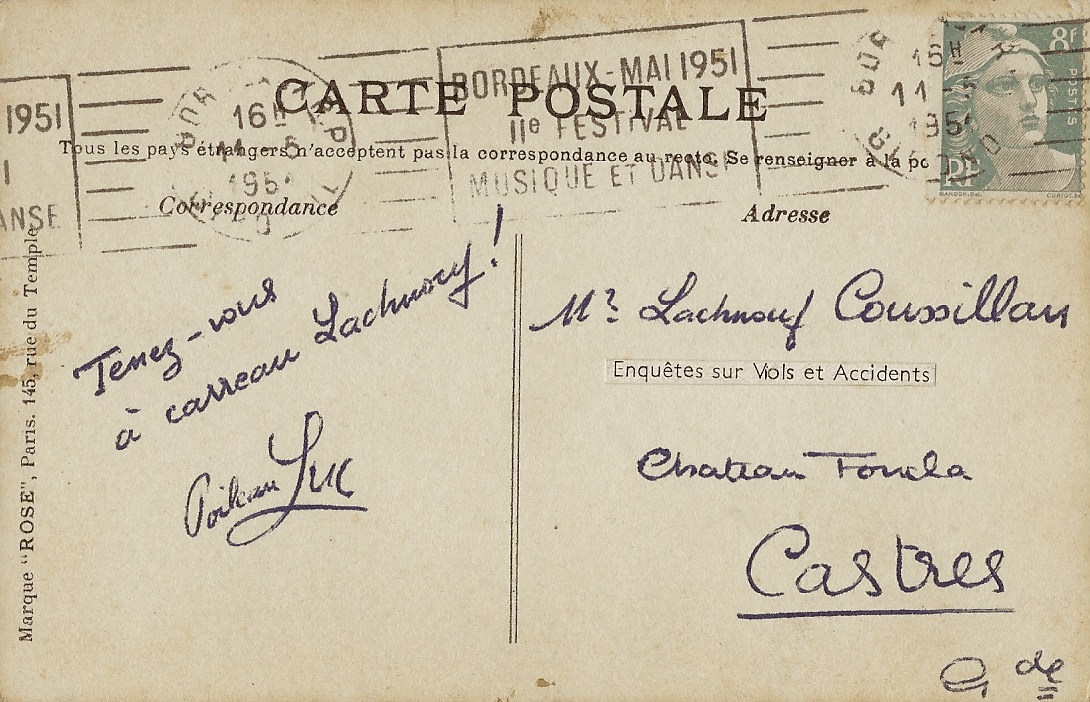 1951
BORDEAUX-MAI 1951
IIe FESTIVAL
MUSIQUE ET DANSE
ANSE
16H
11
16H
11 - 5
1951
8f
POSTES
RF
CARTE POSTALE
Tous les pays étrangers n'acceptent pas la correspondance au recto. Se renseigner à la po
Correspondance
Adresse
Tenez-vous
à carreau Lachnouf !
Poileau Luc
Mr Lachnouf Coussillan
Enquêtes sur Viols et Accidents
Chateau Foucla
Castres
Gde
Marque "ROSE", Paris. 145, rue du Temple